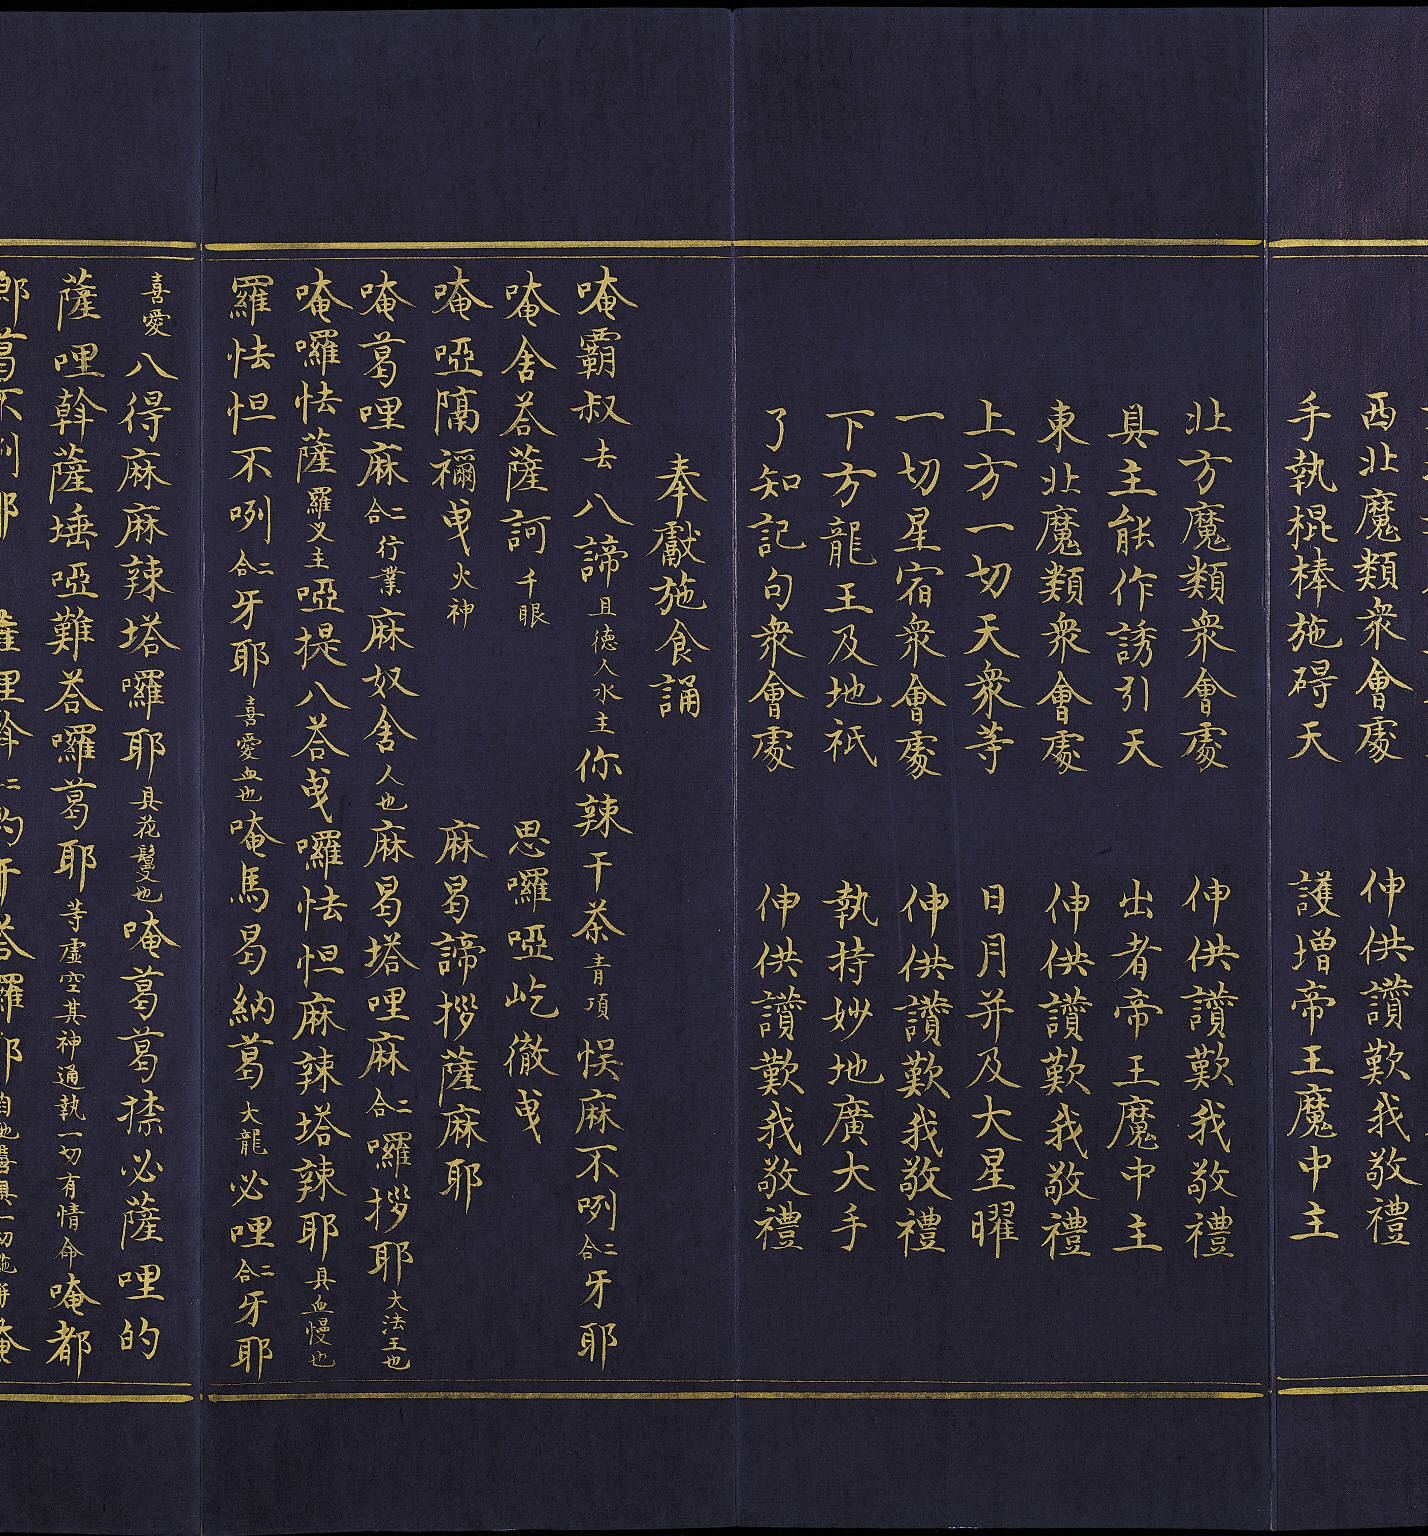 西北魔類衆會處　伸供讚歎我敬禮
手執棍棒施碍天　護增帝王魔中主
北方魔類衆會處　伸供讚歎我敬禮
具主能作誘引天　出者帝王魔中主
東北魔類衆會處　伸供讚歎我敬禮
上方一切天衆等　日月并及大星曜
一切星宿衆會處　伸供讚歎我敬禮
下方龍王及地祇　執持妙地廣大手
了知記句衆會處　伸供讚歎我敬禮
奉獻施食誦
唵霸叔去八諦且德人水主你辣干茶青項悮麻不咧二合牙耶
唵舍荅薩訶千眼　思囉啞屹徹曳
唵啞隔禰曳火神　麻曷諦拶薩麻耶
唵葛哩麻二合行業麻奴舍人也麻曷塔哩麻二合囉拶耶大法王也
唵囉怯薩羅叉主啞提八荅曳囉怯怛麻辣塔辣耶具血慢也
羅怯怛不咧二合牙耶喜愛血也唵馬曷納葛大龍必哩二合牙耶
喜愛八得麻麻辣塔囉耶具花鬘也唵葛葛捺必薩哩的
薩哩斡薩埵啞難荅囉葛耶等虛空其神通執一切有情命唵都